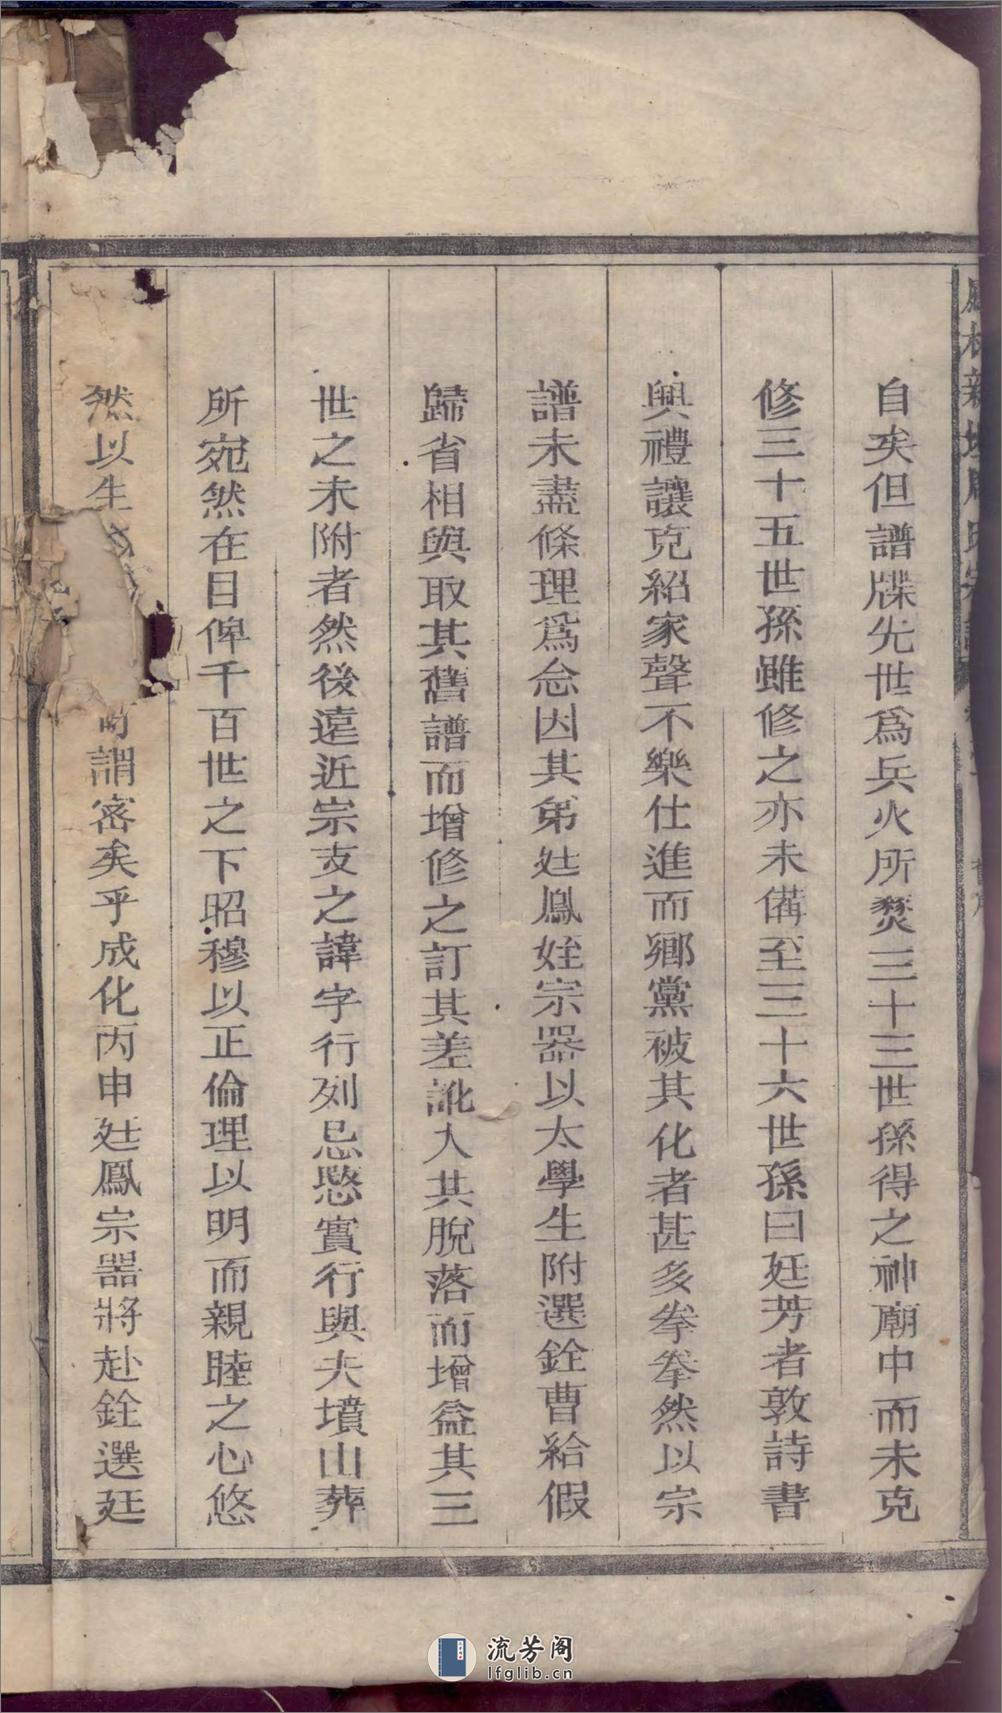 自矣但譜牒先世爲兵火所焚三十三世孫得之神廟中而未克
修三十五世孫雖修之亦未備至三十六世孫曰廷芳者敦詩書
興禮讓克紹家聲不樂仕進而鄉黨被其化者甚多拳拳然以宗
譜未盡條理爲忿因其弟廷鳳姪宗器以太學生附選銓曹給假
歸省相與取其舊譜而增修之訂其差訛人其脫落而增益其三
世之未附者然後遠近宗支之諱字行列忌愍實行與夫墳山葬
所宛然在目俾千百世之下昭穆以正倫理以明而親睦之心悠
然以生謂密矣乎成化丙申廷鳳宗器將赴銓選廷
流芳阁
lfglib.cn